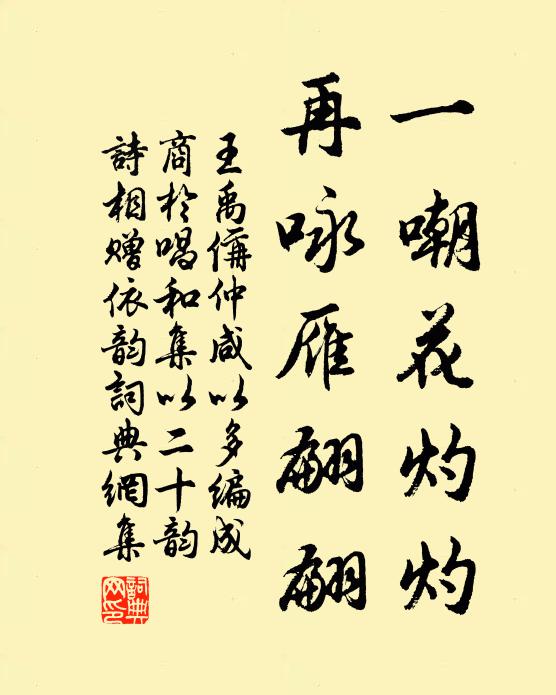 一嘲花灼灼
再咏雁翩翩
王禹偁仲咸以多编成
商於唱和集以二十韵
詩相赠依韵詞典網集
詞典網印